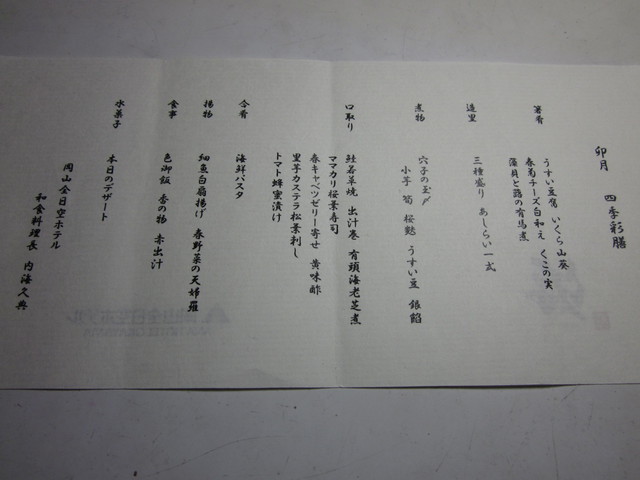 卯月 四季彩膳
箸肴 うすい豆腐 いくら山葵
春菊チーズ白和え くこの実
蒲貝と蕗の有馬煮
造里 三種盛り あしらい一式
煮物 穴子の玉〆
小芋 筍 桜麩 うすい豆 銀餡
口取り 鮭若草焼 出汁巻 有頭海老芝煮
ママカリ桜葉寿司
春キャベツゼリー寄せ 黄味酢
里芋カステラ松葉刺し
トマト蜂蜜漬け
合肴 海鮮パスタ
揚物 細魚白扇揚げ 春野菜の天婦羅
食事 色御飯 香の物 赤出汁
水菓子 本日のデザート
岡山全日空ホテル
和食料理長 内海久典